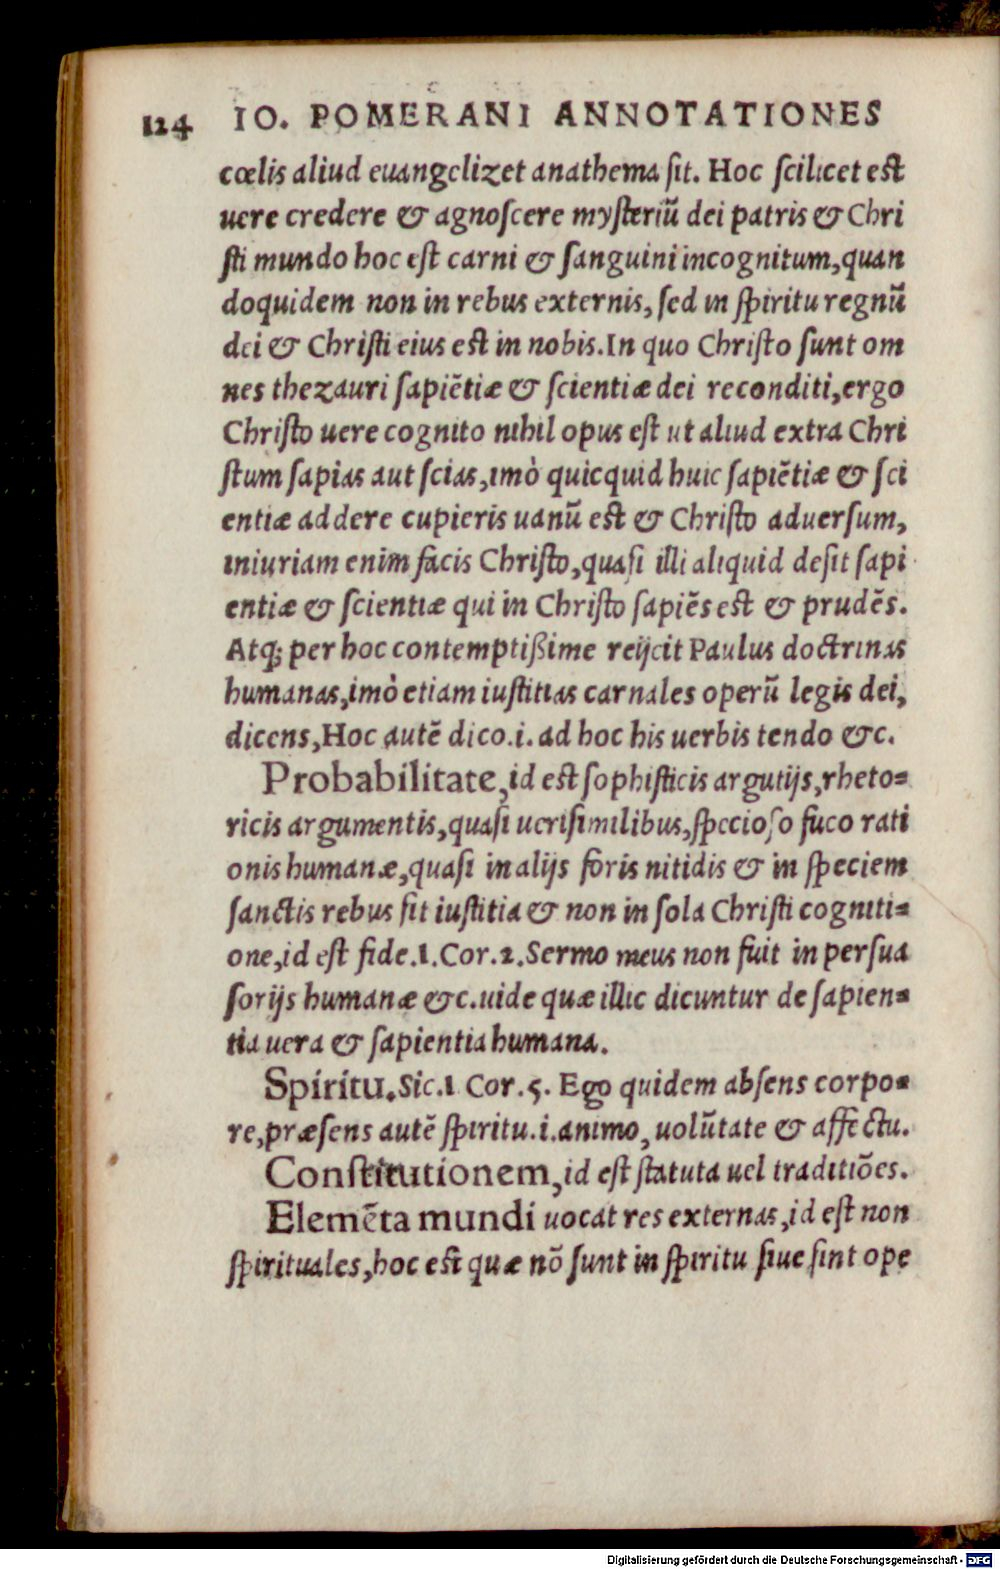 124 IO. POMERANI ANNOTATIONES
cœlis aliud euangelizet anathema ſit. Hoc ſcilicet eſt
uere credere & agnoſcere myſteriū dei patris & Chri
ſti mundo hoc eſt carni & ſanguini incognitum, quan
doquidem non in rebus externis, ſed in ſpiritu regnū
dei & Chriſti eius eſt in nobis. In quo Chriſto ſunt om
nes thezauri ſapiẽtiæ & ſcientiæ dei reconditi, ergo
Chriſto uere cognito nihil opus eſt ut aliud extra Chri
ſtum ſapias aut ſcias, imò quicquid huic ſapiẽtiæ & ſci
entiæ addere cupieris uanū eſt & Chriſto aduerſum,
iniuriam enim facis Chriſto, quaſi illi aliquid deſit ſapi
entiæ & ſcientiæ qui in Chriſto ſapiẽs eſt & prudẽs.
Atq; per hoc contemptißime reijcit Paulus doctrinas
humanas, imò etiam iuſtitias carnales operū legis dei,
dicens, Hoc autẽ dico .i. ad hoc his uerbis tendo &c.
Probabilitate, id eſt ſophiſticis argutijs, rheto=
ricis argumentis, quaſi ueriſimilibus, ſpecioſo fuco rati
onis humanæ, quaſi in alijs foris nitidis & in ſpeciem
ſanctis rebus ſit iuſtitia & non in ſola Chriſti cogniti=
one, id eſt fide. 1. Cor. 2. Sermo meus non fuit in perſua
ſorijs humanæ &c. uide quæ illic dicuntur de ſapien=
tia uera & ſapientia humana.
Spiritu. Sic. 1 Cor. 5. Ego quidem abſens corpo=
re, præſens autẽ ſpiritu .i. animo, uolūtate & affectu.
Conſtitutionem, id eſt ſtatuta uel traditiões.
Elemẽta mundi uocat res externas, id eſt non
ſpirituales, hoc eſt quæ nõ ſunt in ſpiritu ſiue ſint ope
Digitalisierung gefördert durch die Deutsche Forschungsgemeinschaft - DFG